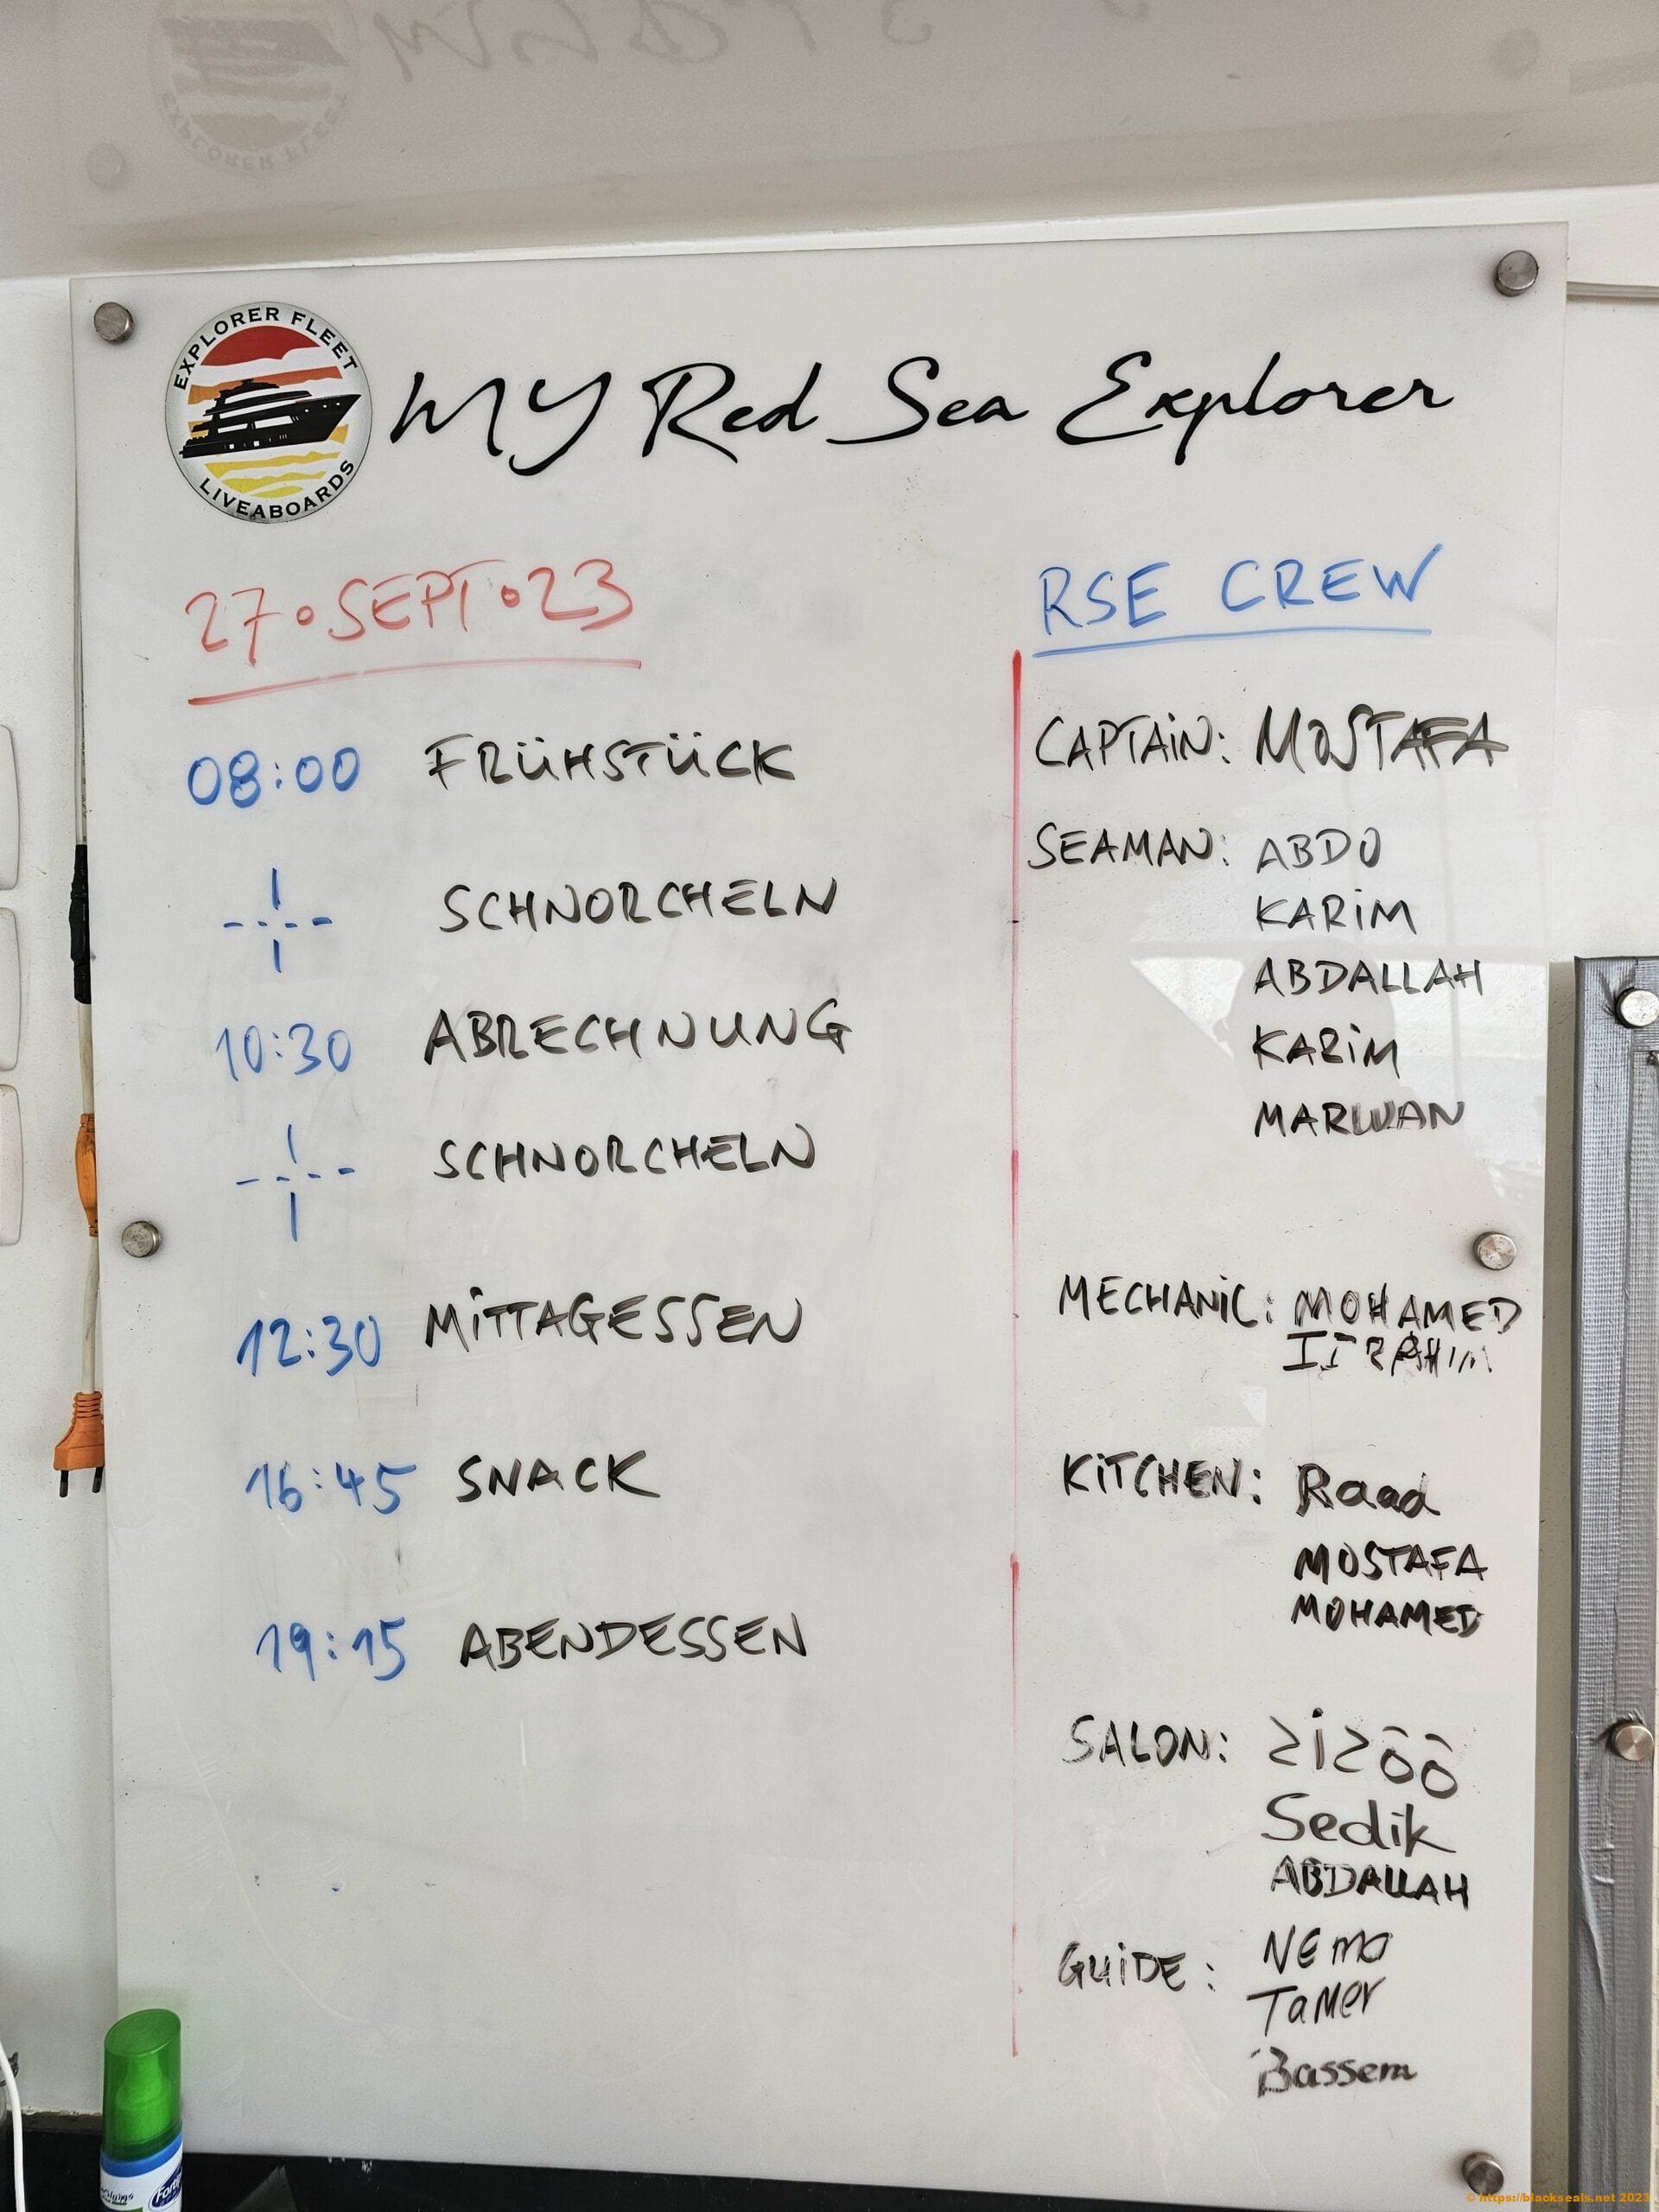 EXPLORER FLEET
LIVEABOARDS
MY Red Sea Explorer
27.SEPT.23
08:00 FRÜHSTÜCK
SCHNORCHELN
10:30 ABRECHNUNG
SCHNORCHELN
12:30 MITTAGESSEN
16:45 SNACK
19:15 ABENDESSEN
RSE CREW
CAPTAIN: MOSTAFA
SEAMAN: ABDO
KARIM
ABDALLAH
KARIM
MARWAN
MECHANIC: MOHAMED
KITCHEN: Raad
MOSTAFA
MOHAMED
SALON: zizôô
Sedik
ABDALLAH
GUIDE: NEMO
TaMer
Bassem
© https://blackseals.net 2023